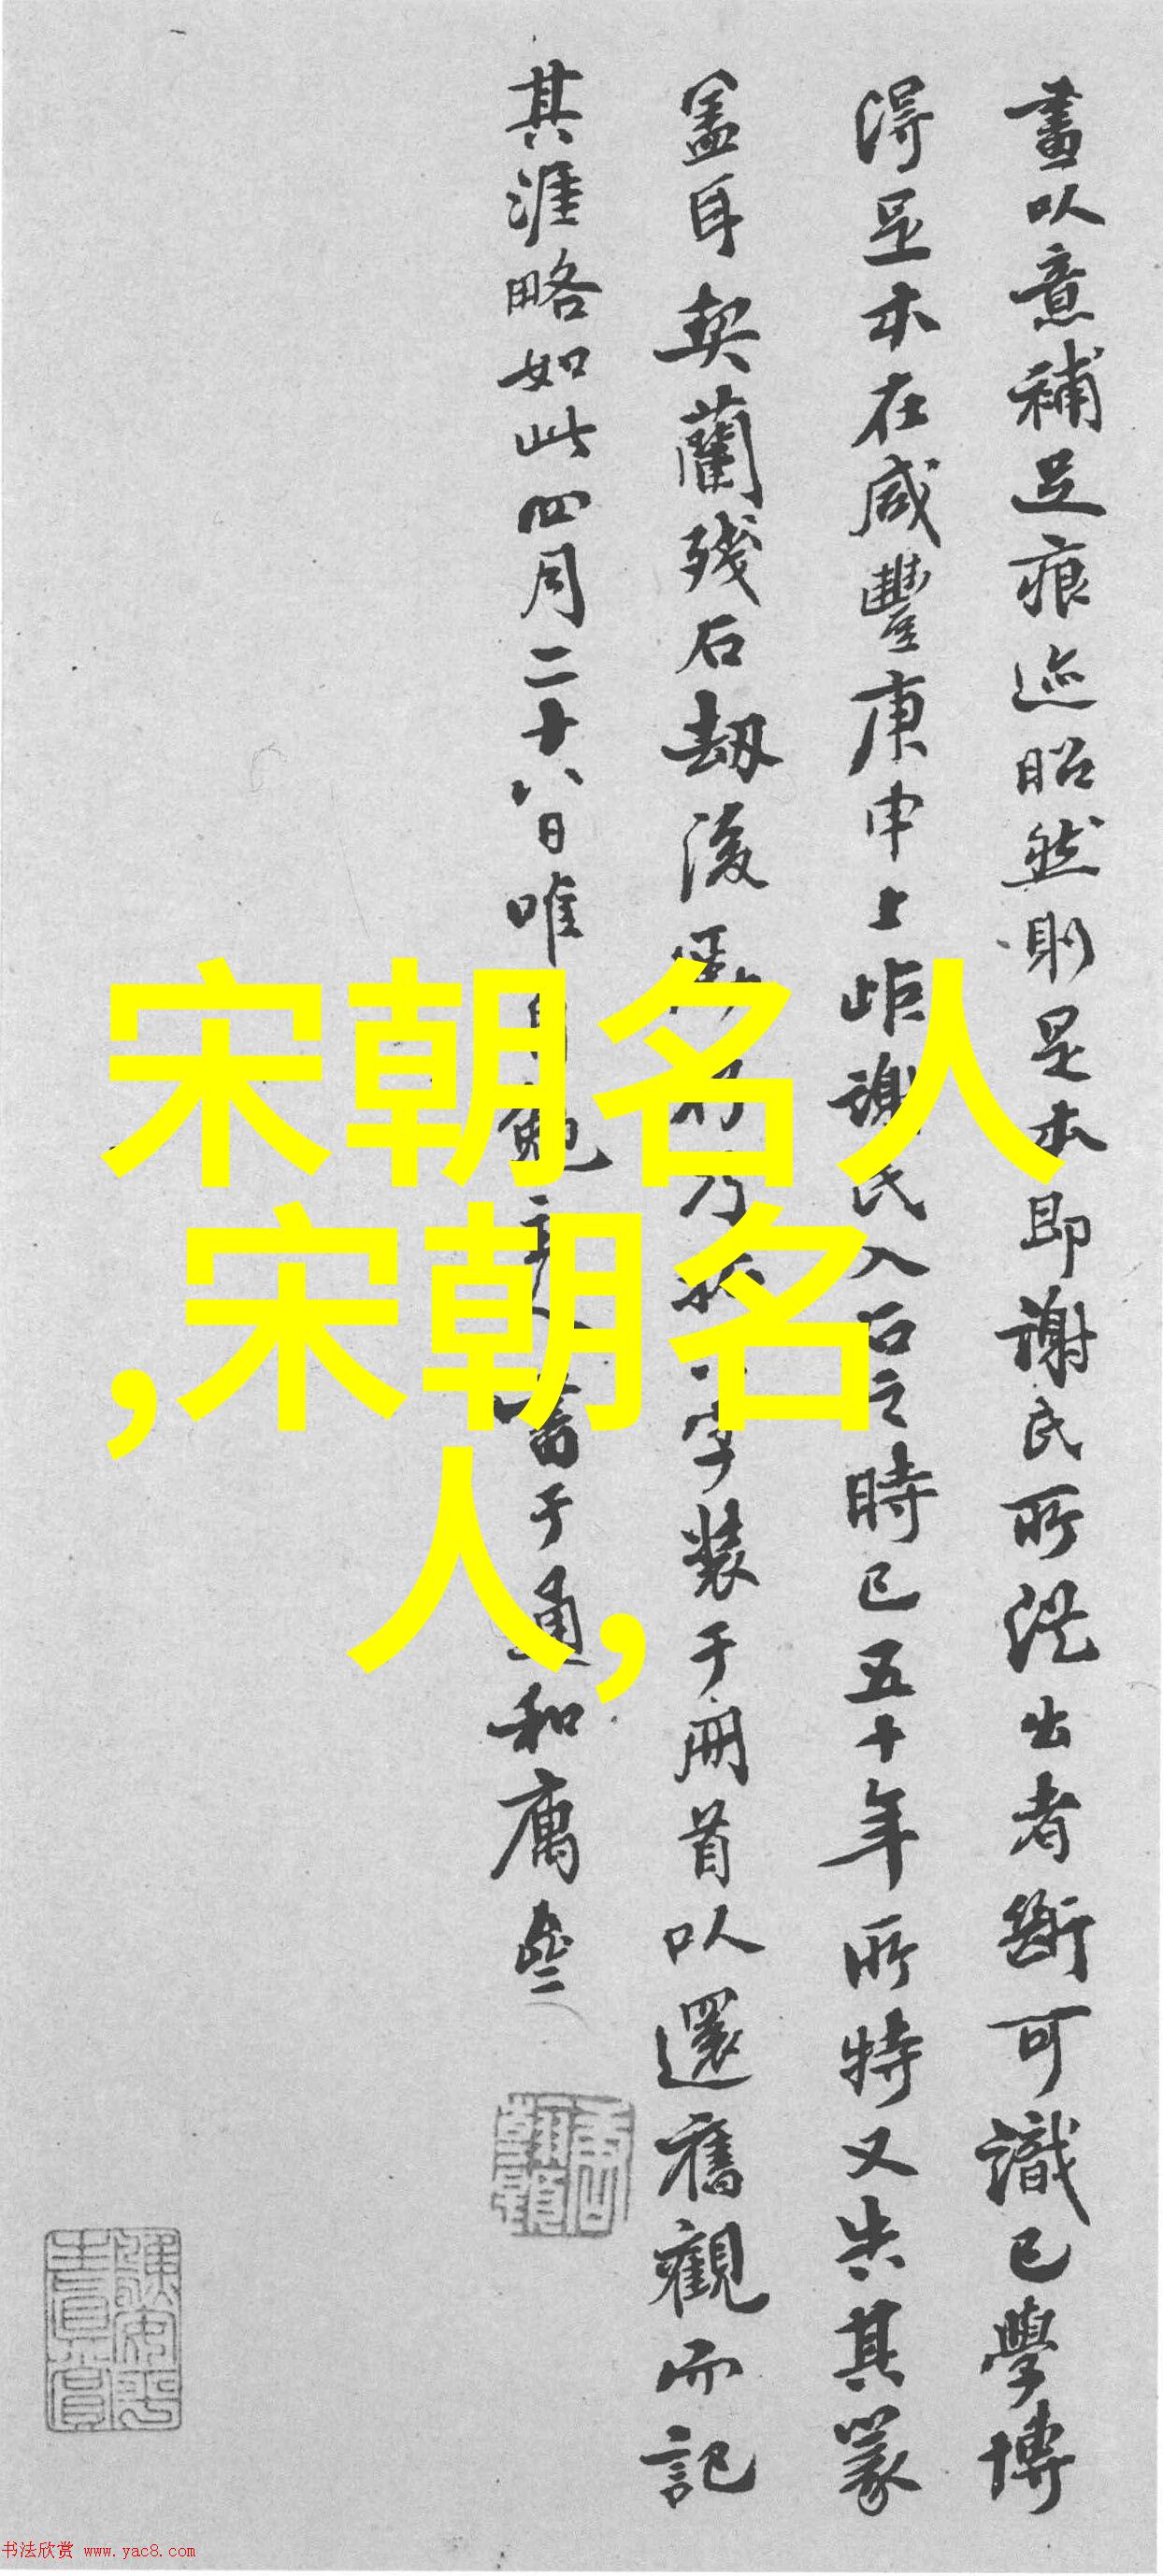 畫以意補足痕迹昭然則是本即謝氏所從出者斷可識已學博
得足本在咸豐庚申上岠謝氏入石之時已五十年所特又失其篆
盖耳契蘭殘石劫後
字裝于冊首以還舊觀而記
其涯略如此四月二十八日唯
書于通和
宋朝名人
,宋朝名
人,
书法欣赏 www.yac8.com